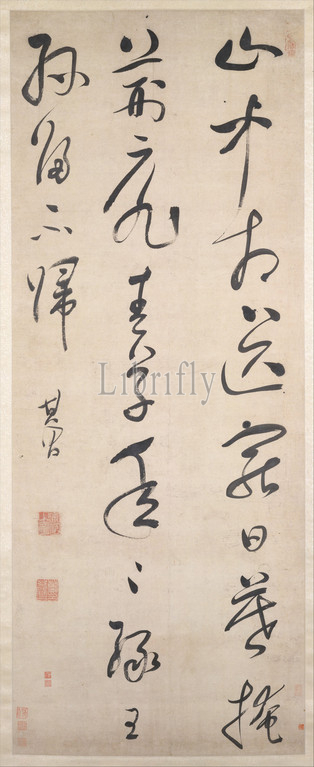 山中相送罷日暮掩
荊扉春草年〻綠王
孫歸不歸
其昌
Librifly